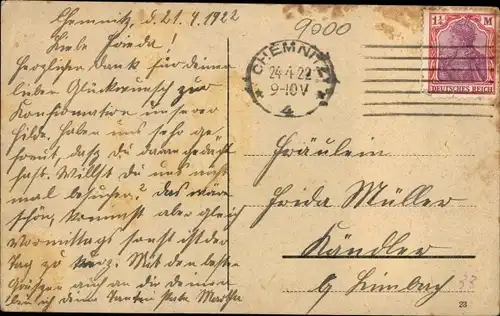 Chemnitz, d. 21. 4. 1922
Liebe Frieda!
Herzlichen Dank für deinen
lieben Glückwunsch zur
Konfirmation unserer
Hilde. Haben uns sehr ge-
freut, daß du daran gedacht
hast. Willst du uns nicht
mal besuchen? Das wäre
schön, kommst aber gleich
Vormittags sonst ist der
Tag zu kurz. Mit den besten
Grüßen auch an die deinen
bin ich deine Tante Martha
9000
CHEMNITZ
24.4.22
9-10V
4
1¼ M
DEUTSCHES REICH
Fräulein
Frida Müller
Kändler
b/ Limbach
33
23